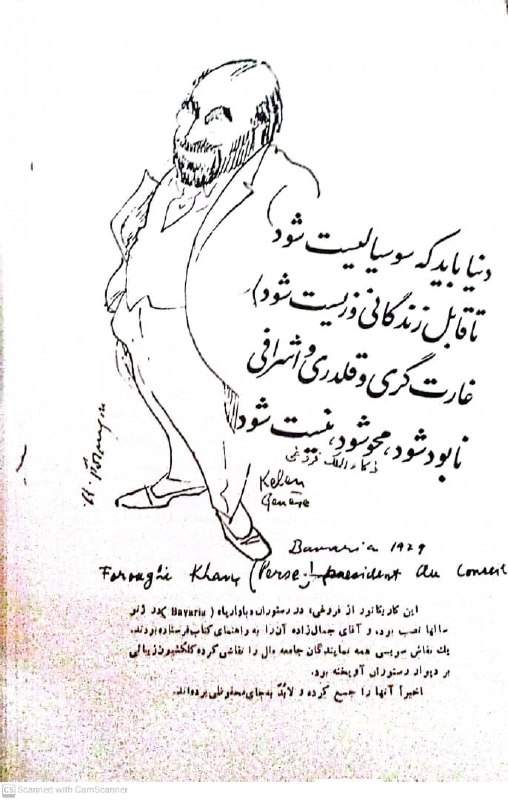 دنیا باید که سوسیالیست شود
تا قابل زندگانی و زیست شود)
غارت گری و قلدری و اشرافی
نابود شود، محو شود، نیست شود
ذکاء الملک فروغی
Kelen
Genève
Bavaria 1929
Foroughi Khan, (Perse) president du Conseil
این کاریکاتور از فروغی، در رستوران باواریاء (Bavaria) در ژنو
سالها نصب بود، و آقای جمال‌زاده آن را به راهنمای کتاب فرستاده بودند.
یك نقاش سویسی همه نمایندگان جامعه ملل را نقاشی کرده کلکسیون زیبائی
بر دیوار رستوران آویخته بود.
اخیراً آنها را جمع کرده و لابد به جای محفوظی برده‌اند.
CS Scanned with CamScanner